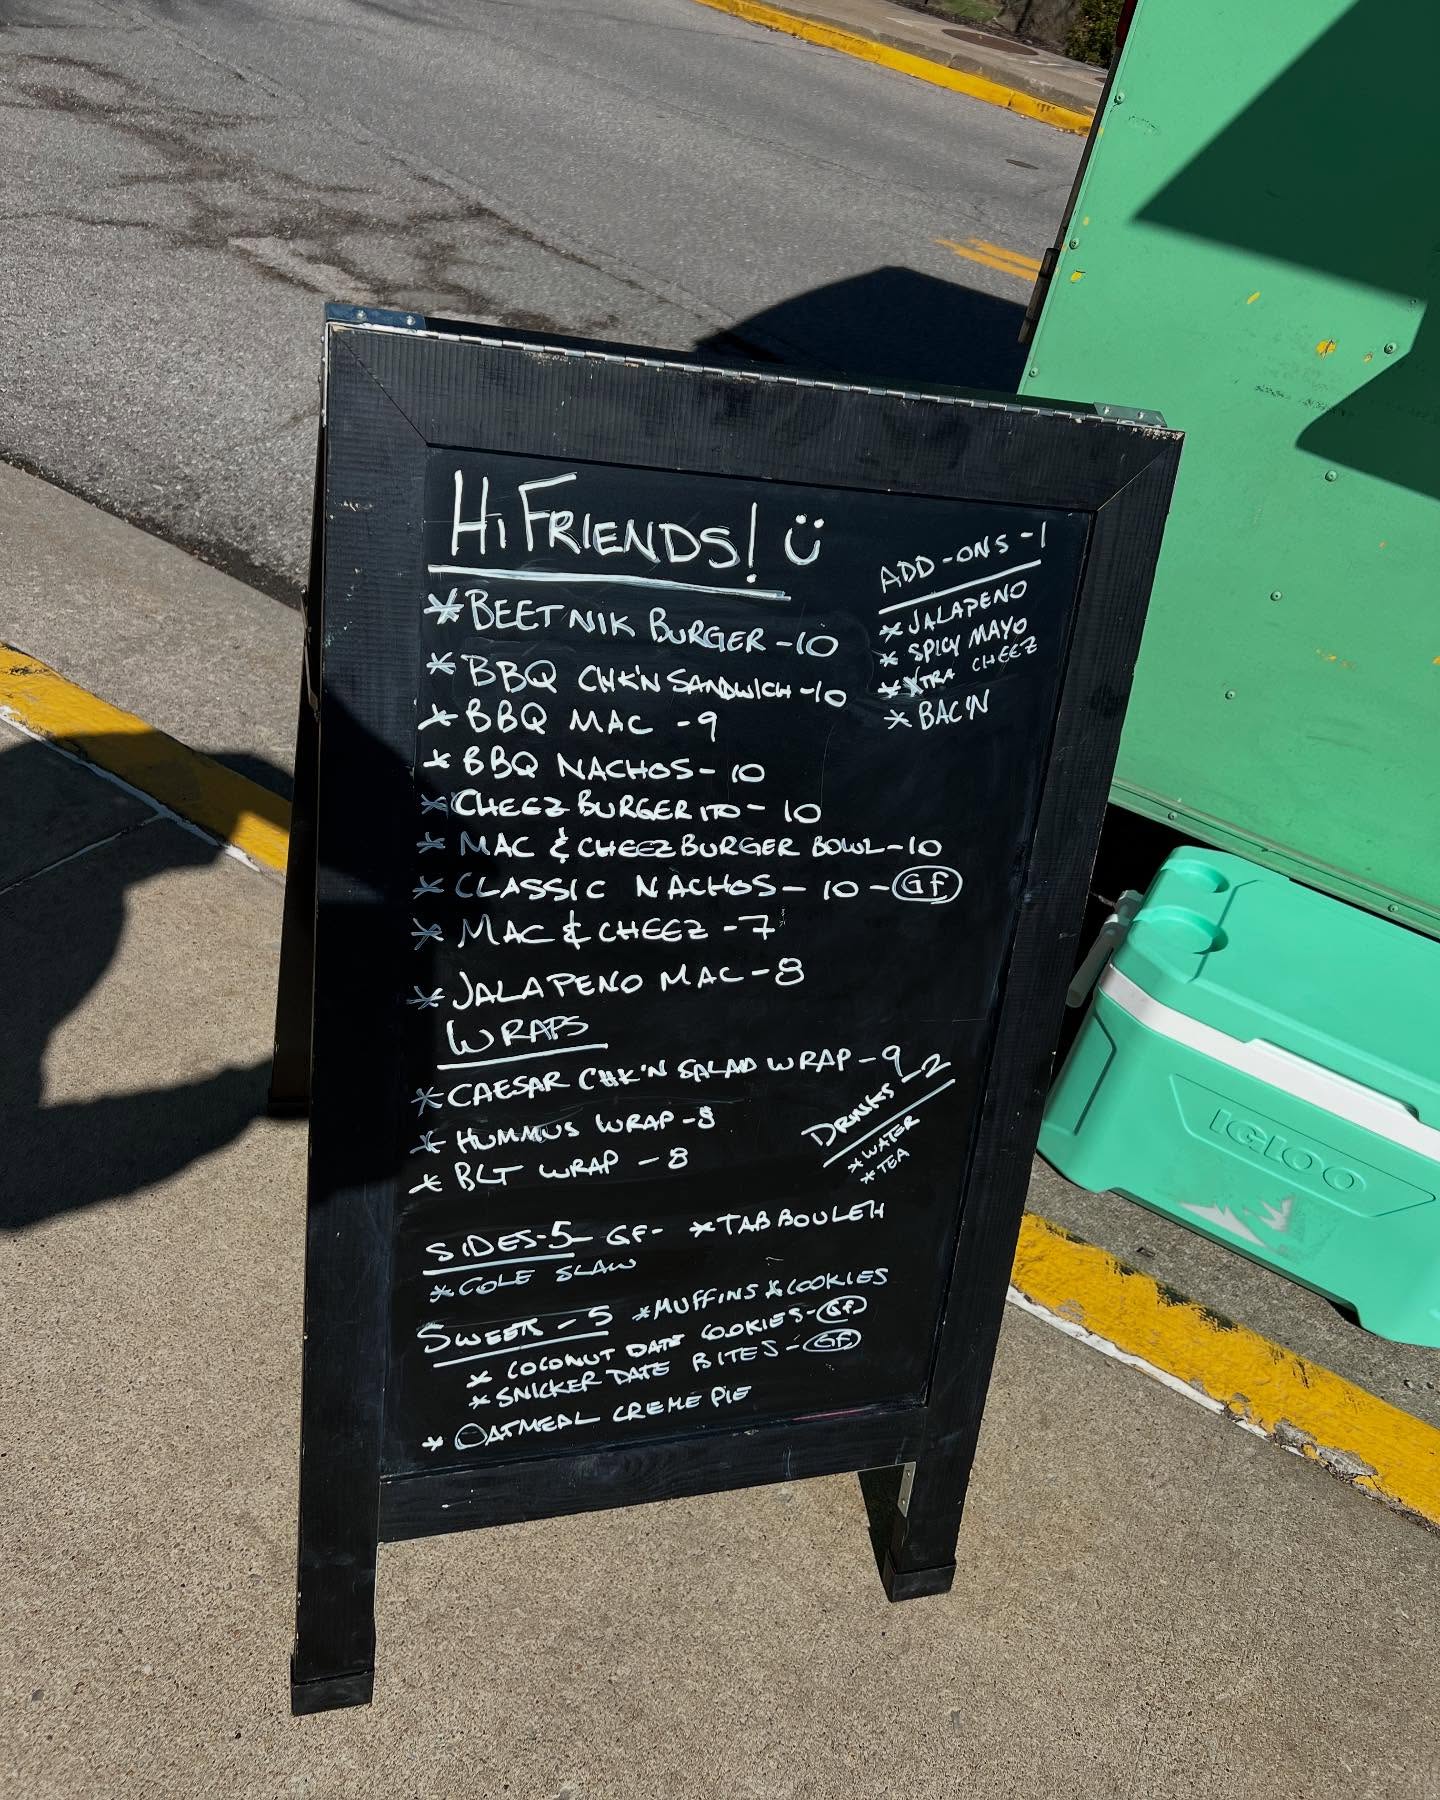 HI FRIENDS!
*BEETNIK BURGER-10
*BBQ CHK'N SANDWICH-10
*BBQ MAC -9
*BBQ NACHOS-10
*CHEEZBURGERITO-10
*MAC & CHEEZBURGER BOWL-10
*CLASSIC NACHOS-10-GF
*MAC & CHEEZ-7
*JALAPENO MAC-8
ADD-ONS-1
*JALAPENO
*SPICY MAYO
*XTRA CHEEZ
*BAC'N
WRAPS
*CAESAR CHK'N SALAD WRAP-9
*HUMMUS WRAP-8
*BLT WRAP-8
DRINKS-2
*WATER
*TEA
SIDES-5- GF- *TABBOULEH
*COLE SLAW
SWEETS-5 *MUFFINS & COOKIES
*COCONUT DATE COOKIES-GF
*SNICKER DATE BITES-GF
*OATMEAL CREME PIE
IGLOO